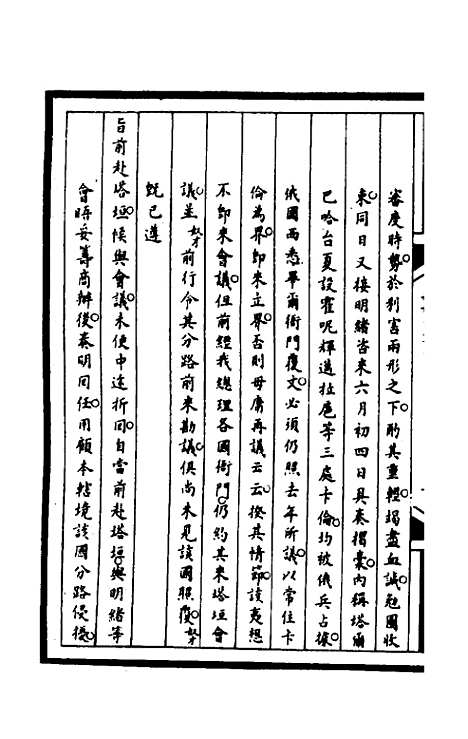 審度時勢於利害兩形之下酌其重輕竭盡血誠勉圖收
束同日又接明緒咨來六月初四日具奏摺稾內稱塔爾
巴哈台夏設霍呢輝邁拉扈等三處卡倫均被俄兵占據
俄國西悉畢爾衙門覆文必須仍照去年所議以常住卡
倫為界即來立界否則毋庸再議云云揆其情節該夷想
不即來會議但前經我總理各國衙門仍約其來塔垣會
議並奴才前行令其分路前來勘議俱尚未見該國照覆奴才
旣已遵
旨前赴塔垣候與會議未便中途折回自當前赴塔垣與明緒等
會晤妥籌商辦後奏明回任用顧本轄境該國分路侵擾